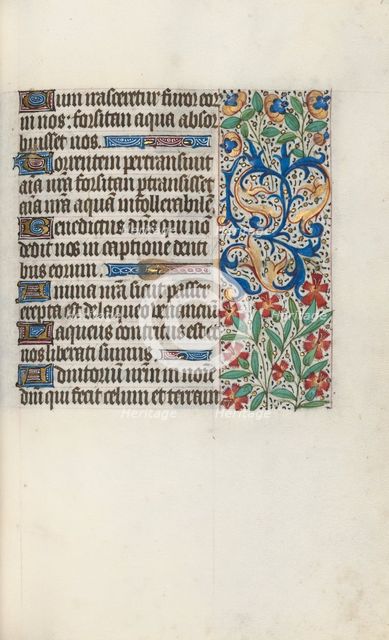 Cum irasceretur furor eor
in nos: forsitan aqua absor
buisset nos.
Torrentem pertransiuit
aīa nr̄a forsitan ptransisset
aīa nr̄a aquā intollerabilē.
Benedictus dn̄s qui nō
dedit nos in captione denti
bus eorum.
Anima nr̄a sicut passer
erepta est de laqueo venantiū
Laqueus contritus est et
nos liberati sumus.
Adiutorium nr̄m in nom̄
dn̄i qui fecit celum et terram
Heritage
Heritage
Heritage
Heritage